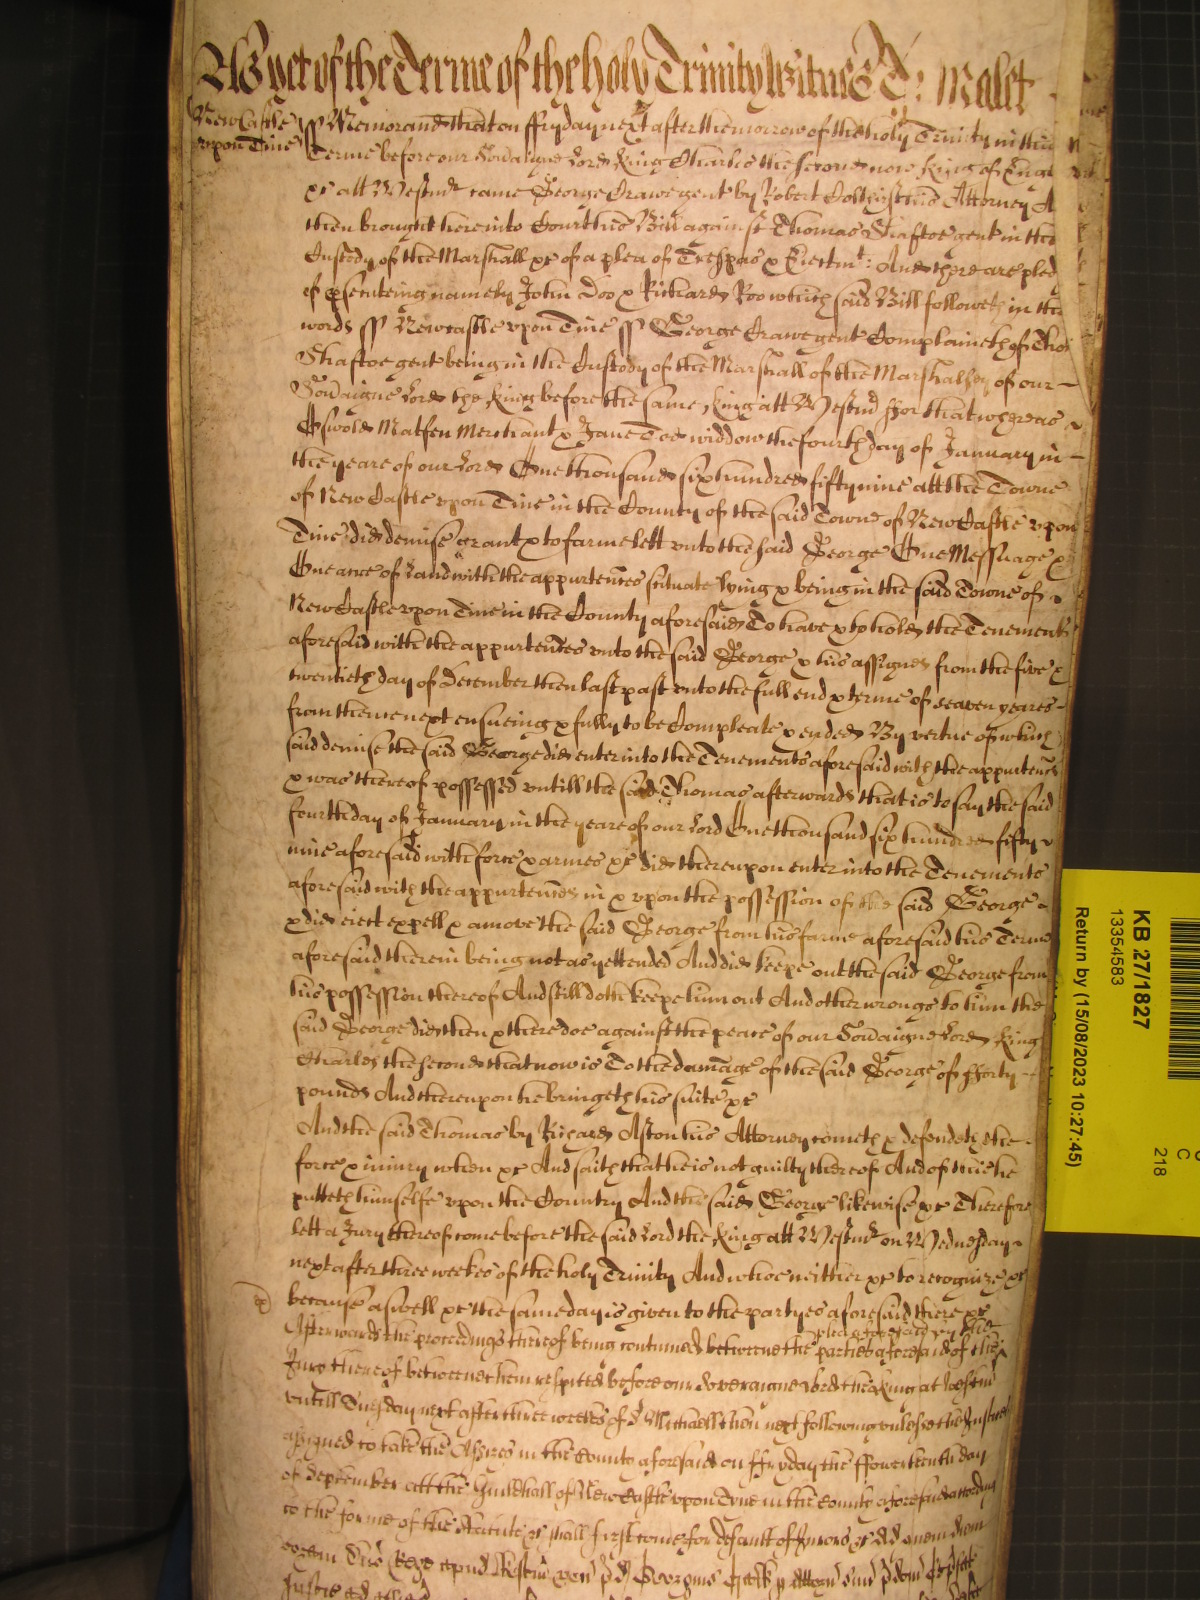 As yet of the Terme of the holy Trinity Witnes T: Malet
NewCastle
upon Tine
ss Memorand that on ffryday next after the morrow of the holy Trinity in this
Terme before our Soveraigne Lord King Charles the second now King of Engl
xc att Westmr came George Crawe gent by Robert his Attorney A
then brought here into Court his Bill against Thomas Shaftoe gent in the
Custody of the Marshall xc of a plea of Trespas & Eiectmt: And there are pled
of psecuteing namely John Doo & Richard Roo which said Bill followeth in the
words ss Newcastle upon Tine ss George Crawe gent Complaineth of Tho
Shaftoe gent being in the Custody of the Marshall of the Marshalsey of our
Soveraigne Lord the King before the same King att Westmr ffor that whereas
Oswold Matfen Merchant & Jane Toe widdow the fourth day of January in
the yeare of our Lord One thousand six hundred fifty nine att the Towne
of New Castle upon Tine in the County of the said Towne of New Castle upon
Tine did demise grant & to farme lett unto the said George One Messuage &
One acre of Land with the appurtences situate lying & being in the said Towne of
New Castle upon Tine in the County aforesaid To have & to hold the Tenements
aforesaid with the appurtences unto the said George & his assignes from the five &
twentieth day of December then last past unto the full end & terme of seaven yeares
from thence next ensueing & fully to be Compleate & ended By vertue of which
said demise the said George did enter into the Tenements aforesaid with the appurtences
& was thereof possessed untill the said Thomas afterwards that is to say the said
fourth day of January in the yeare of our Lord One thousand six hundred fifty
nine aforesaid with force & armes xc did thereupon enter into the Tenements
aforesaid with the appurtences in & upon the possession of the said George
& did eiect expell & amove the said George from his farme aforesaid his Terme
aforesaid therein being not as yett ended And did keepe out the said George from
his possession thereof And still doth keepe him out And other wrongs to him the
said George did then & there doe against the peace of our Soveraigne Lord King
Charles the second that now is To the damage of the said George of fforty
pounds And thereupon he bringeth his suite xc
And the said Thomas by Richard Aston his Attorney cometh & defendeth the
force & iniury when xc And saith that he is not guilty thereof And of this he
putteth himselfe upon the Country And the said George likewise xc Therefore
lett a Jury thereof come before the said Lord the King att Westmr on Wednesday
next after three weekes of the holy Trinity And whoe neither xc to recognize xc
because aswell xc the same day is given to the partyes aforesaid there xc
Afterwards the proceedings thereof being continued betweene the parties aforesaid of the
plea aforesaid by the
Jury thereof betweene them respited before our Soveraigne Lord the King at Westmr
untill Tuesday next after three weekes of St Michaell then next following unlesse the Justices
assigned to take the Assizes in the County aforesaid on ffryday the ffowerteenth day
of September att the Guildhall of New Castle upon Tyne in the County aforesaid according
to the forme of the Statute xc shall first come for default of Jurors xc Ad quem diem
coram Dno Rege apud Westm ven pd Georgius
KB 27/1827
13354583
Return by (15/08/2023 10:27:45)
C
218